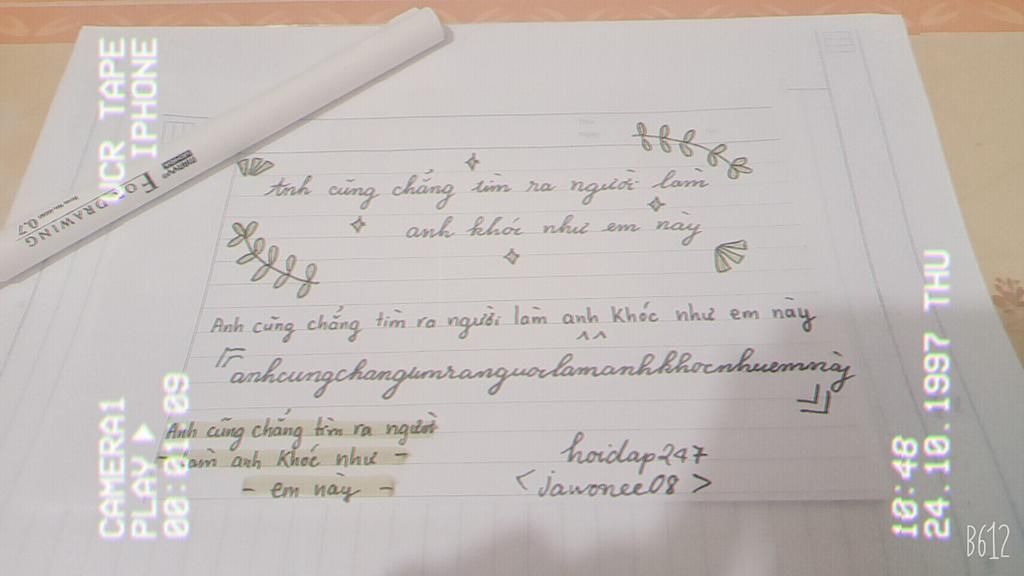 VCR TAPE
IPHONE
DRAWING
0.7
Anh cũng chẳng tìm ra người làm
anh khóc như em này
Anh cũng chẳng tìm ra người làm anh khóc như em này
^^
anhcungchangtimranguoilamanhkhocnhuemnày
Anh cũng chẳng tìm ra người
- làm anh khóc như -
- em này -
hoidap247
<jawonee08>
CAMERA1
PLAY
10:48
24.10.1997 THU
B612